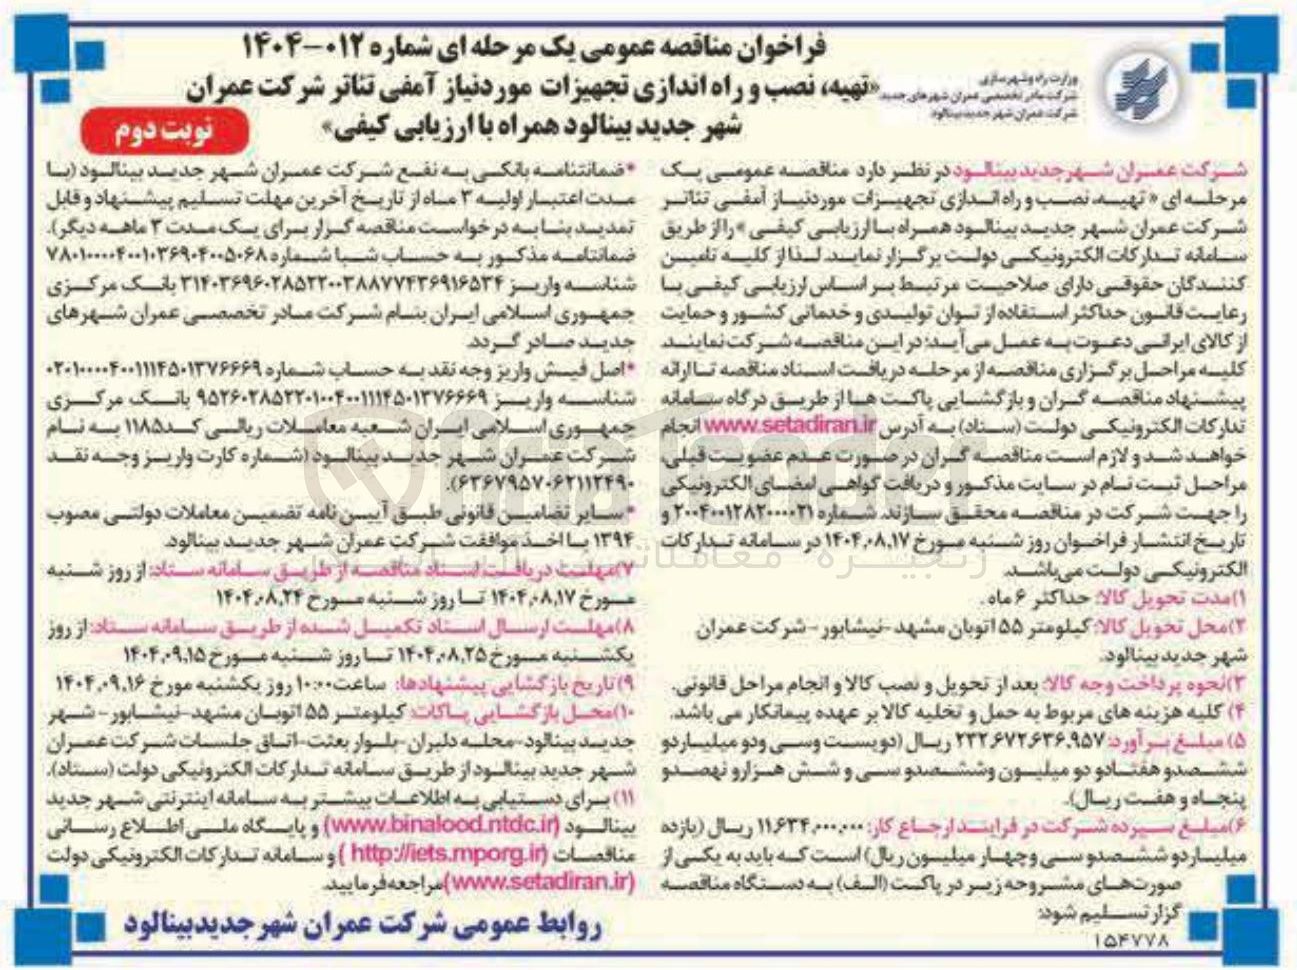 فراخوان مناقصه عمومی یک مرحله ای شماره ۰۱۲-۱۴۰۴
«تهیه، نصب و راه اندازی تجهیزات موردنیاز آمفی تئاتر شرکت عمران
شهر جدید بینالود همراه با ارزیابی کیفی»
نوبت دوم
وزارت راه و شهرسازی
شرکت مادر تخصصی عمران شهرهای جدید
شرکت عمران شهر جدید بینالود
شرکت عمران شهر جدید بینالود در نظر دارد مناقصه عمومی یک
مرحله ای «تهیه، نصب و راه اندازی تجهیزات موردنیاز آمفی تئاتر
شرکت عمران شهر جدید بینالود همراه با ارزیابی کیفی» را از طریق
سامانه تدارکات الکترونیکی دولت برگزار نماید. لذا از کلیه تامین
کنندگان حقوقی دارای صلاحیت مرتبط بر اساس ارزیابی کیفی با
رعایت قانون حداکثر استفاده از توان تولیدی و خدماتی کشور و حمایت
از کالای ایرانی دعوت به عمل می آید: در این مناقصه شرکت نمایند.
کلیه مراحل برگزاری مناقصه از مرحله دریافت اسناد مناقصه تا ارائه
پیشنهاد مناقصه گران و بازگشایی پاکت ها از طریق درگاه سامانه
تدارکات الکترونیکی دولت (ستاد) به آدرس www.setadiran.ir انجام
خواهد شد و لازم است مناقصه گران در صورت عدم عضویت قبلی،
مراحل ثبت نام در سایت مذکور و دریافت گواهی امضای الکترونیکی
را جهت شرکت در مناقصه محقق سازند. شماره ۲۰۰۴۰۰۱۲۸۲۰۰۰۰۲۱ و
تاریخ انتشار فراخوان روز شنبه مورخ ۱۴۰۴،۰۸،۱۷ در سامانه تدارکات
الکترونیکی دولت می‌باشد.
۱)مدت تحویل کالا: حداکثر ۶ ماه .
۲)محل تحویل کالا: کیلومتر ۵۵ اتوبان مشهد -نیشابور - شرکت عمران
شهر جدید بینالود.
۳)نحوه پرداخت وجه کالا: بعد از تحویل و نصب کالا و انجام مراحل قانونی.
۴) کلیه هزینه های مربوط به حمل و تخلیه کالا بر عهده پیمانکار می باشد.
۵) مبلغ برآورد: ۲۳۲،۶۷۲،۶۳۶،۹۵۷ ریال (دویست و سی و دو میلیارد و
ششصد و هفتاد و دو میلیون و ششصد و سی و شش هزار و نهصد و
پنجاه و هفت ریال).
۶)مبلغ سپرده شرکت در فرایند ارجاع کار: ۱۱،۶۳۴،۰۰۰،۰۰۰ ریال (یازده
میلیارد و ششصد و سی و چهار میلیون ریال) است که باید به یکی از
صورت‌های مشروحه زیر در پاکت (الف) به دستگاه مناقصه
گزار تسلیم شود:
۱۵۴۷۷۸
*ضمانتنامه بانکی به نفع شرکت عمران شهر جدید بینالود (با
مدت اعتبار اولیه ۳ ماه از تاریخ آخرین مهلت تسلیم پیشنهاد و قابل
تمدید بنا به درخواست مناقصه گزار برای یک مدت ۳ ماهه دیگر).
ضمانتنامه مذکور به حساب شبا شماره ۷۸۰۱۰۰۰۰۴۰۰۱۰۳۶۹۰۴۰۰۵۰۶۸
شناسه واریز ۳۱۴۰۳۶۹۶۰۲۸۵۲۲۰۰۳۸۸۷۷۴۳۶۹۱۶۵۳۴ بانک مرکزی
جمهوری اسلامی ایران بنام شرکت مادر تخصصی عمران شهرهای
جدید صادر گردد.
*اصل فیش واریز وجه نقد به حساب شماره ۰۲۰۱۰۰۰۰۴۰۰۱۱۱۴۵۰۱۳۷۶۶۶۹
شناسه واریز ۹۵۲۶۰۲۸۵۲۲۰۱۰۰۴۰۰۱۱۱۴۵۰۱۳۷۶۶۶۹ بانک مرکزی
جمهوری اسلامی ایران شعبه معاملات ریالی کد۱۱۸۵ به نام
شرکت عمران شهر جدید بینالود (شماره کارت واریز وجه نقد
۶۳۶۷۹۵۷۰۶۲۱۱۲۴۹۰).
*سایر تضامین قانونی طبق آیین نامه تضمین معاملات دولتی مصوب
۱۳۹۴ با اخذ موافقت شرکت عمران شهر جدید بینالود.
۷)مهلت دریافت اسناد مناقصه از طریق سامانه ستاد: از روز شنبه
مورخ ۱۴۰۴،۰۸،۱۷ تا روز شنبه مورخ ۱۴۰۴،۰۸،۲۴
۸)مهلت ارسال اسناد تکمیل شده از طریق سامانه ستاد: از روز
یکشنبه مورخ ۱۴۰۴،۰۸،۲۵ تا روز شنبه مورخ ۱۴۰۴،۰۹،۱۵
۹)تاریخ بازگشایی پیشنهادها: ساعت ۱۰:۰۰ روز یکشنبه مورخ ۱۴۰۴،۰۹،۱۶
۱۰)محل بازگشایی پاکات: کیلومتر ۵۵ اتوبان مشهد-نیشابور- شهر
جدید بینالود-محله دلیران-بلوار بعثت-اتاق جلسات شرکت عمران
شهر جدید بینالود از طریق سامانه تدارکات الکترونیکی دولت (ستاد).
۱۱) برای دستیابی به اطلاعات بیشتر به سامانه اینترنتی شهر جدید
بینالود (www.binalood.ntdc.ir) و پایگاه ملی اطلاع رسانی
مناقصات (http://iets.mporg.ir ) و سامانه تدارکات الکترونیکی دولت
(www.setadiran.ir) مراجعه فرمایید.
روابط عمومی شرکت عمران شهر جدید بینالود